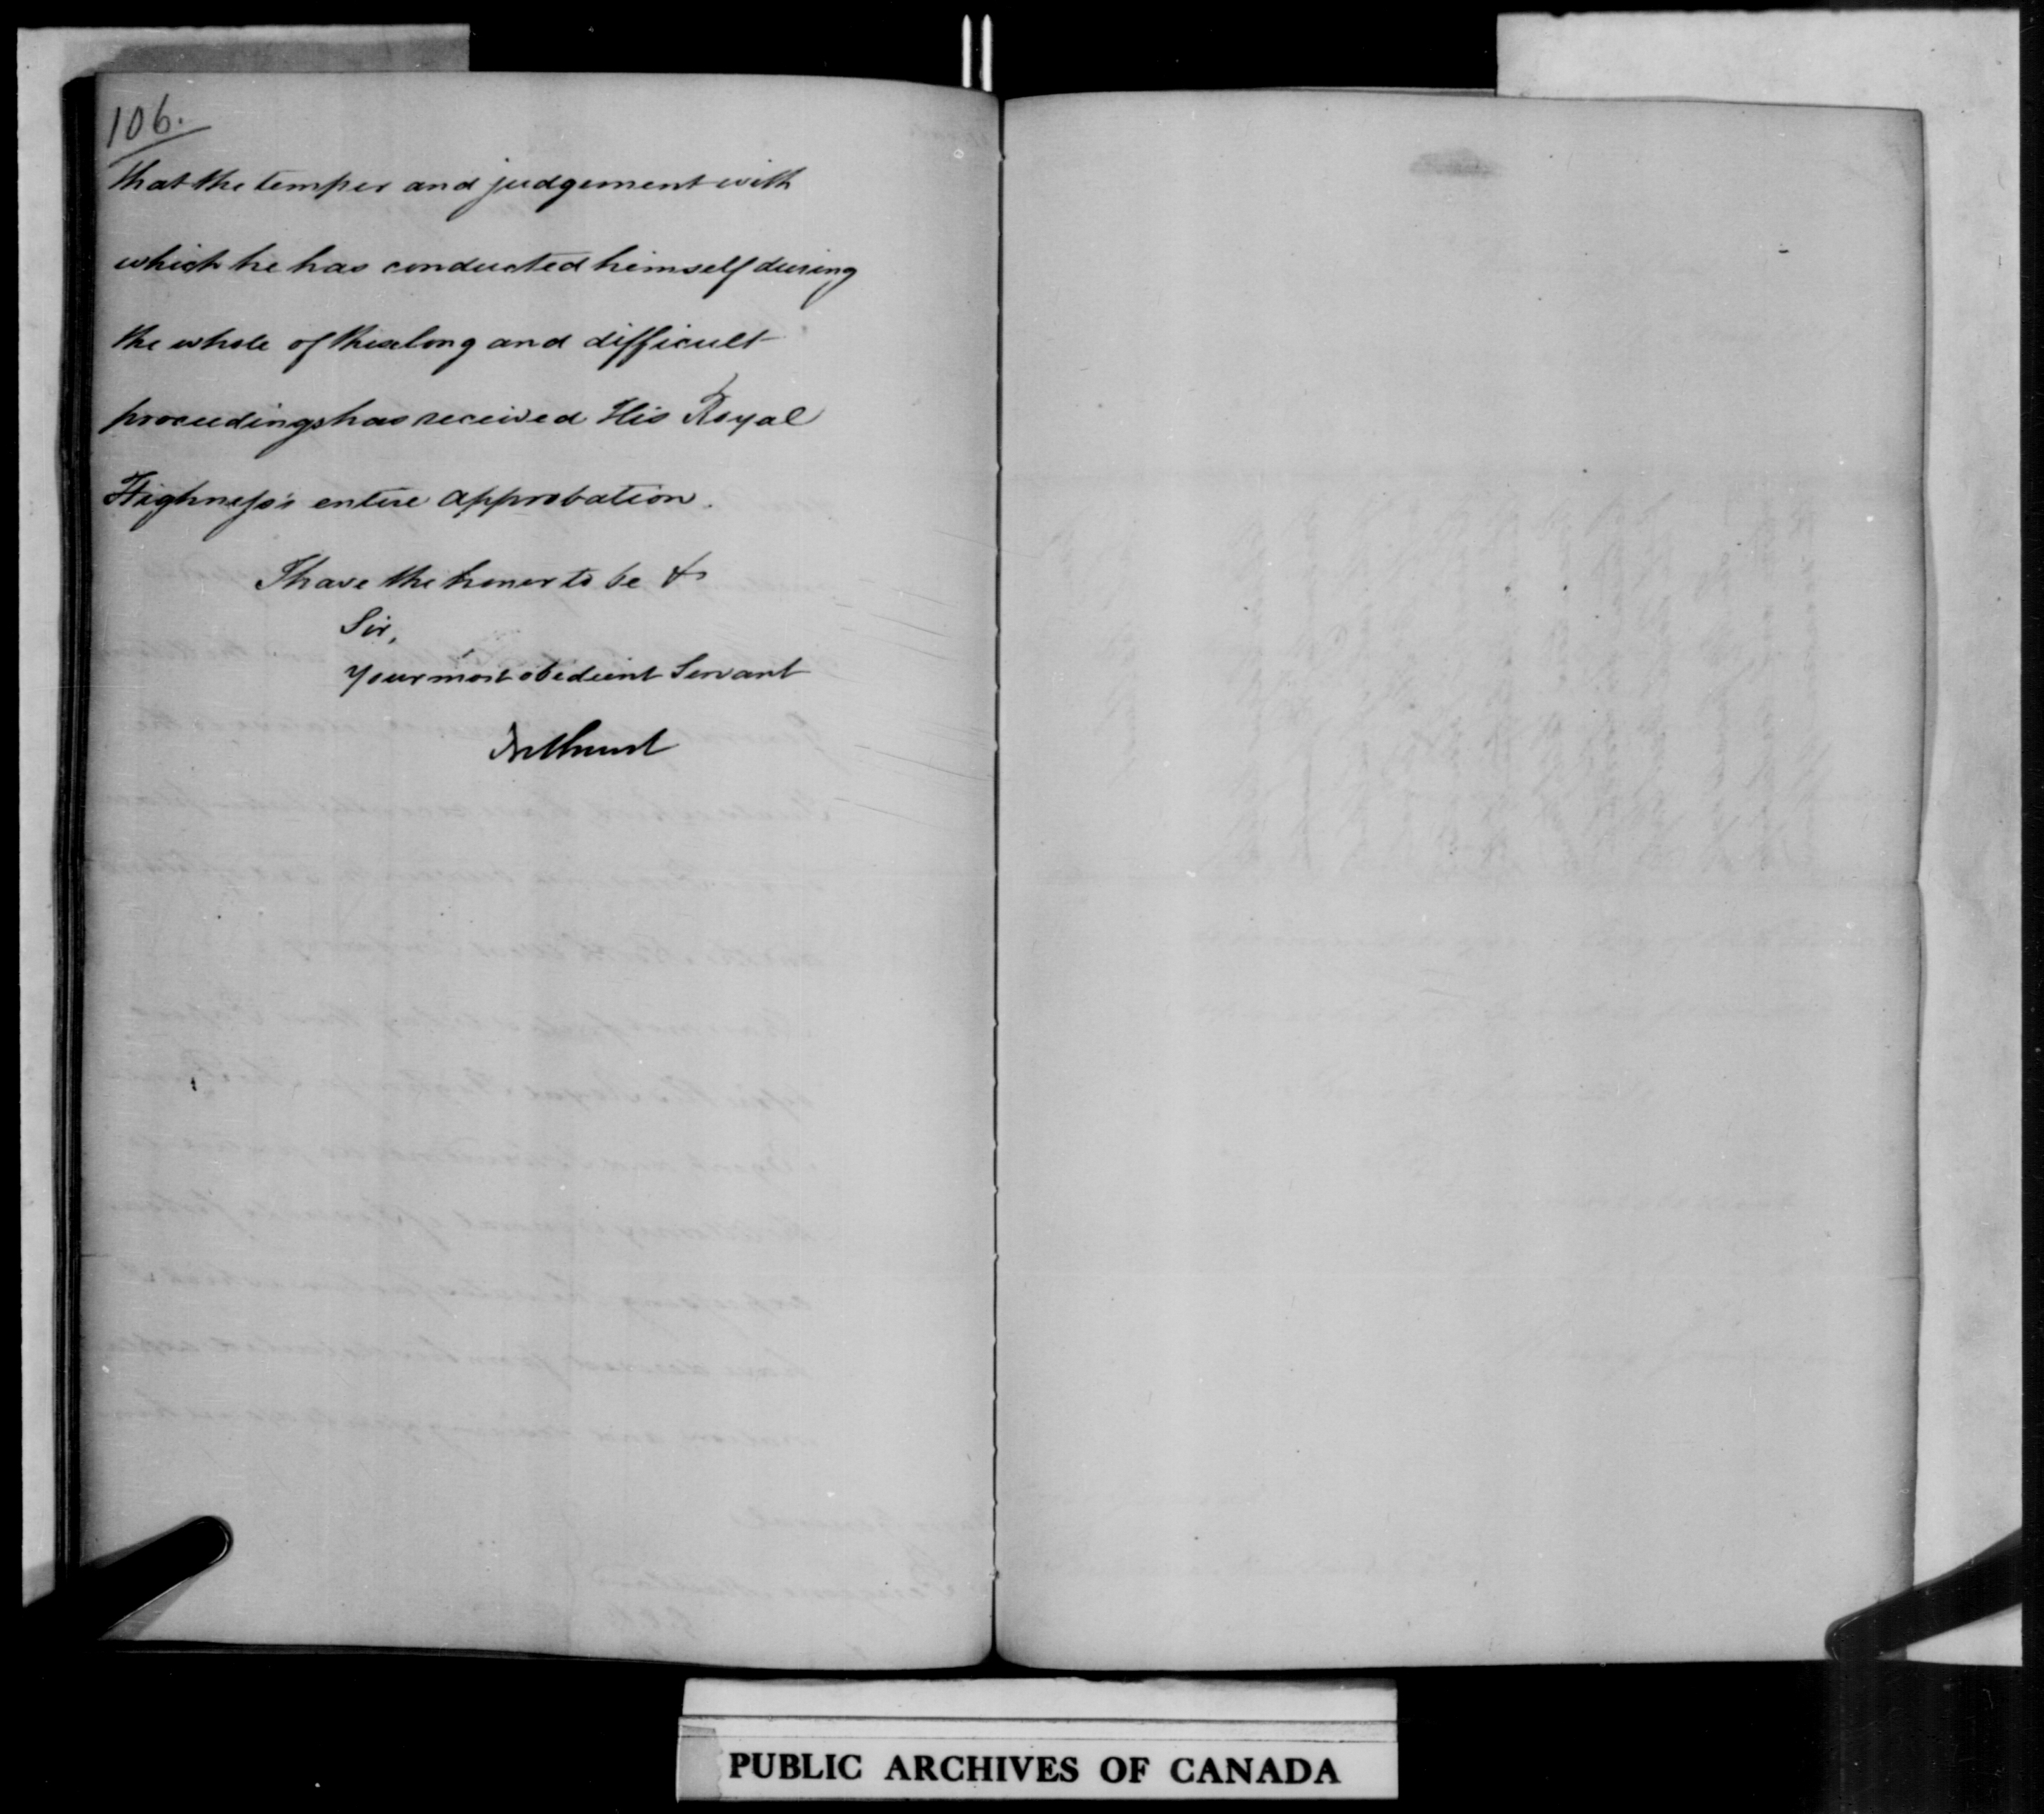 106.
that the temper and judgement with
which he has conducted himself during
the whole of these long and difficult
proceedings has received His Royal
Highness's entire approbation.
I have the honor to be &
Sir,
Your most obedient Servant
Bathurst
PUBLIC ARCHIVES OF CANADA